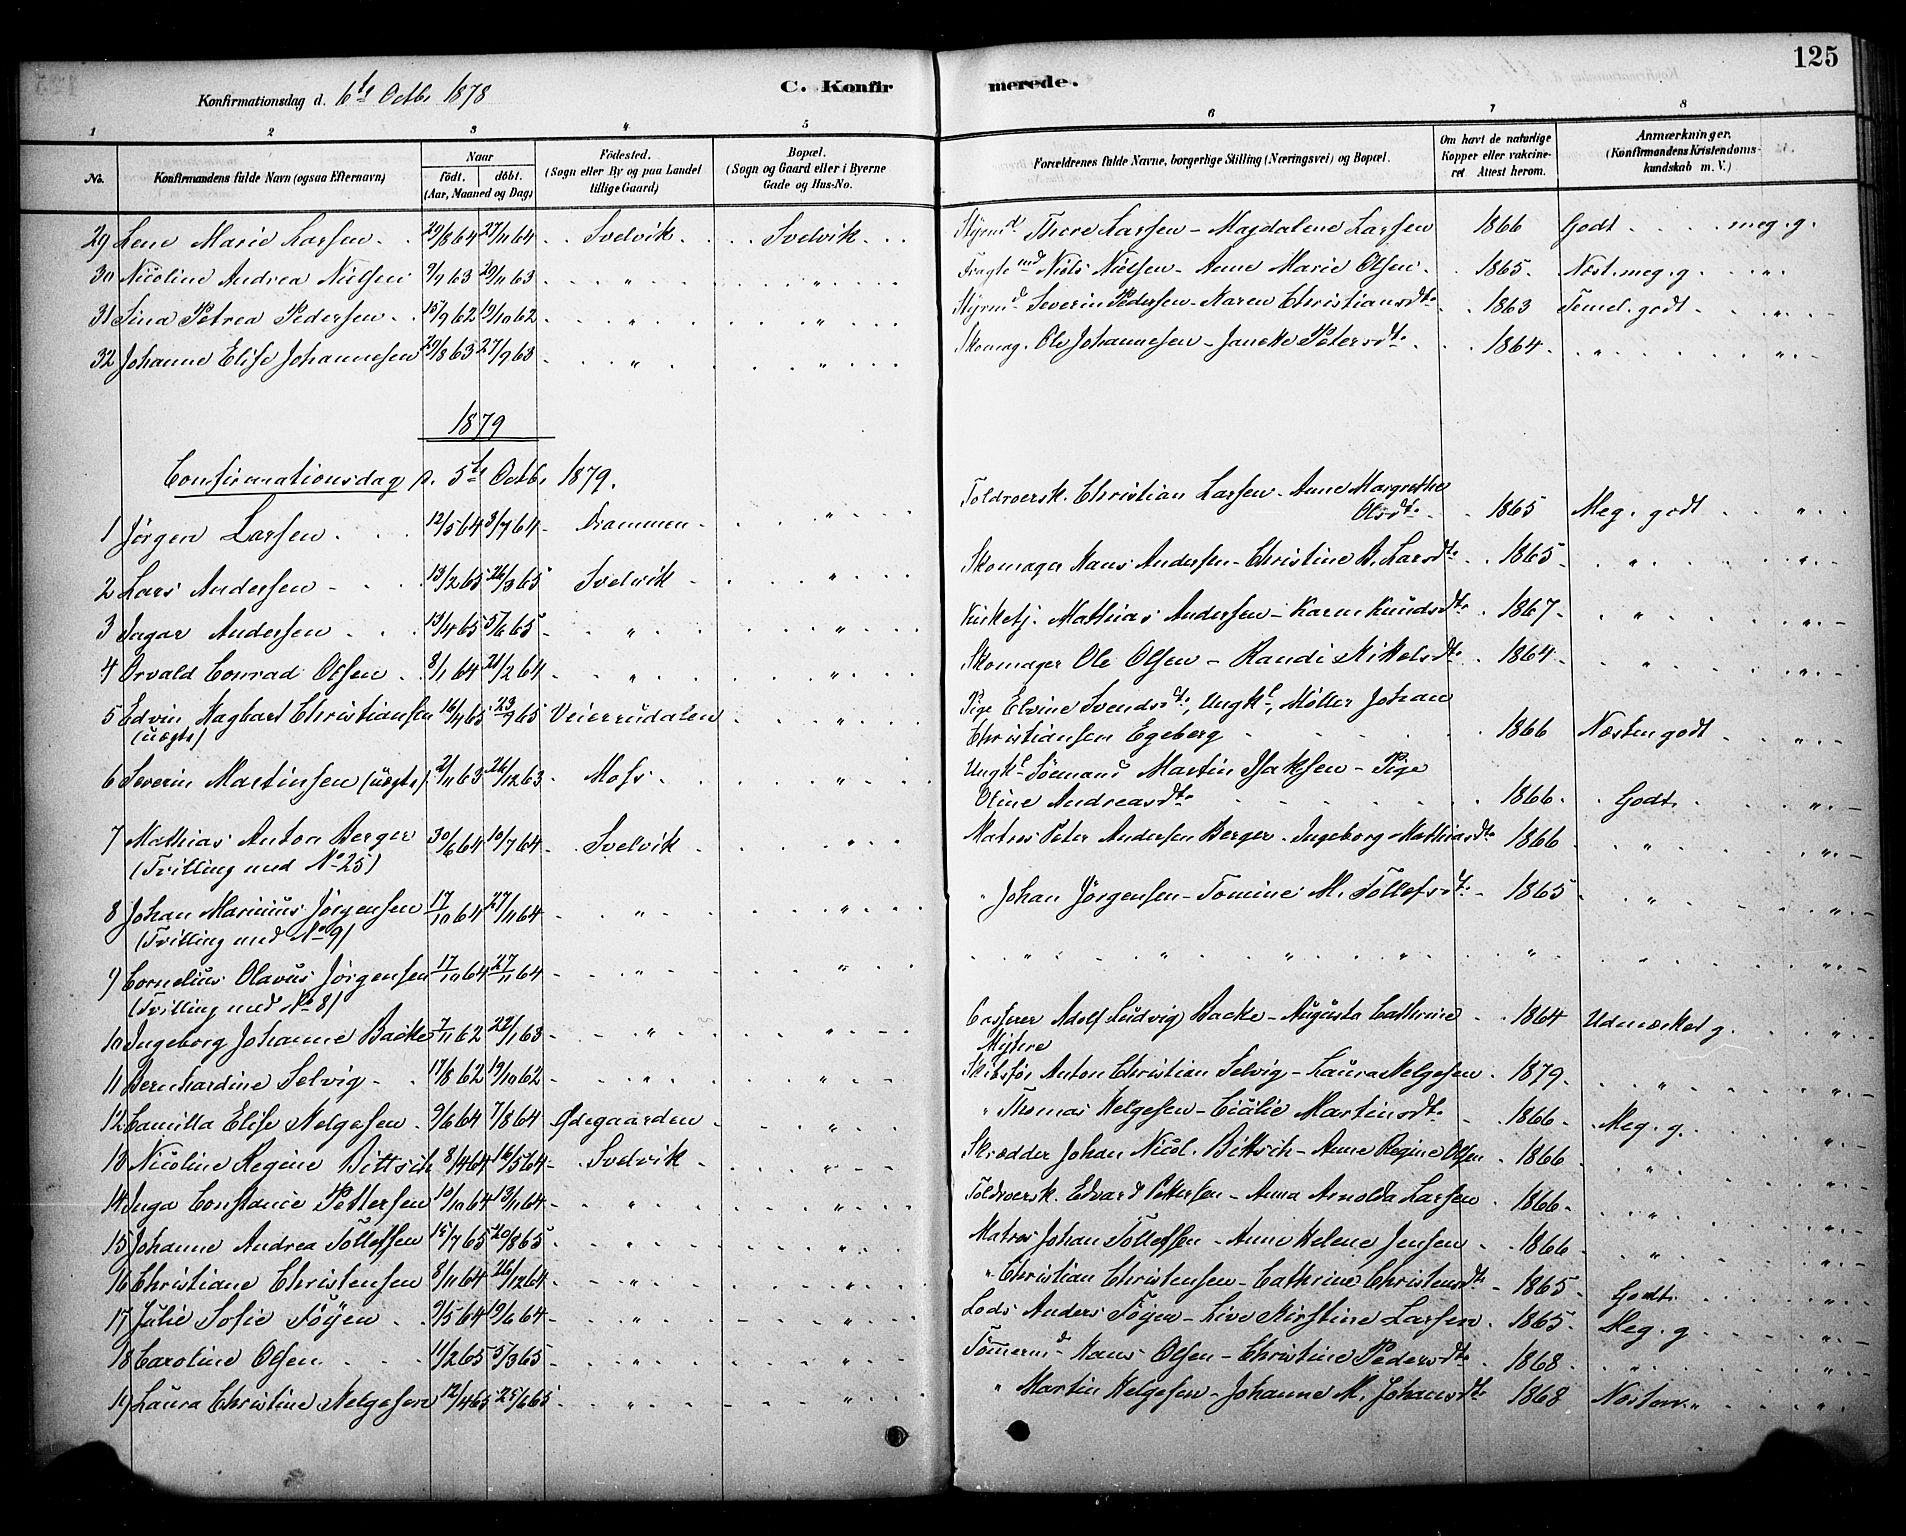 125
Konfirmationsdag d. 6te Octbr 1878 C. Konfirmerede.
1 2 3 4 5 6 7 8
No. Konfirmandens fulde Navn (ogsaa Efternavn) Naar født. døbt. (Aar, Maaned og Dag) Fødested. (Sogn eller By og paa Landet tillige Gaard) Bopæl. (Sogn og Gaard eller i Byerne Gade og Hus-No. Forældrenes fulde Navne, borgerlige Stilling (Næringsvei) og Bopæl. Om havt de naturlige Kopper eller vakcineret Attest herom. Anmærkninger. (Konfirmandens Kristendomskundskab m. V.)
29 Lene Marie Larsen 29/8 64 27/11 64 Svelvik Svelvik Styrmd Thore Larsen - Magdalene Larsen 1866 Godt meg. g.
30 Nicoline Andrea Nielsen 9/9 63 29/11 63 " " Fragtemd Niels Nielsen - Anne Marie Olsen 1865 Næst. meg. g. "
31 Sina Petrea Pedersen 15/9 62 19/10 62 " " Styrmd Severin Pedersen - Karen Christiansdt. 1863 Temel. godt "
32 Johanne Elise Johannesen 29/8 63 27/9 63 " " Skomag. Ole Johannesen - Janeke Petersdt. 1864 " "
1879
Confirmationsdag d. 5te Octbr 1879.
1 Jørgen Larsen 12/5 64 3/7 64 Drammen " Toldroersk. Christian Larsen - Anne Margrethe Olsdt. 1865 Meg. godt "
2 Lars Andersen 13/2 65 26/3 65 Svelvik " Skomager Hans Andersen - Christine B. Larsdt. 1865 " "
3 Jagar Andersen 13/4 65 5/6 65 " " Kirketj. Mathias Andersen - Karen Knudsdt. 1867 " "
4 Orvald Conrad Olsen 8/1 64 21/2 64 " " Skomager Ole Olsen - Randi Mikelsdt. 1864 " "
5 Edvin Hagbart Christiansen (uægte) 16/4 65 23/9 65 Veierudalen " Pige Elvine Svendsdt., Ungkl, Møller Johan Christiansen Egeberg 1866 Næsten godt "
6 Severin Martinsen (uægte) 21/11 63 26/12 63 Moss " Ungkl Sømand Martin Isaksen - Pige Oline Andreasdt. 1866 Godt "
7 Mathias Anton Berger (Tvilling med No 25) 30/6 64 10/7 64 Svelvik " Matros Peter Andersen Berger - Ingeborg Mathiasdt. 1866 " "
8 Johan Marinius Jørgensen (Tvilling med No 9) 17/10 64 27/11 64 " " " Johan Jørgensen - Tomine M. Tollefsdt. 1865 " "
9 Cornelius Olavus Jørgensen (Tvilling med No 8) 17/10 64 27/11 64 " " " " " " " " "
10 Ingeborg Johanne Backe 7/11 62 22/1 63 " " Casserer Adolf Ludvig Backe - Augusta Cathrine Myhre 1864 Udmærket g. "
11 Bernhardine Selvig 17/8 62 19/10 62 " " Skibsfør. Anton Christian Selvig - Laura Helgesen 1879 " "
12 Camilla Elise Helgesen 9/6 64 7/8 64 Ødegaarden " " Thomas Helgesen - Cicilie Martinsdt. 1866 Meg. g. "
13 Nicoline Regine Bittsch 8/4 64 16/5 64 Svelvik " Skrædder Johan Nicol. Bittsch - Anne Regine Olsen 1866 " "
14 Inga Constance Pettersen 10/10 64 13/11 64 " " Toldroersk. Edvard Pettersen - Anna Arnolda Larsen 1866 " "
15 Johanne Andrea Tollefsen 15/7 65 20/8 65 " " Matros Johan Tollefsen - Anne Helene Jensen 1866 " "
16 Christiane Christensen 8/11 64 26/12 64 " " " Christian Christensen - Cathrine Christensdt. 1865 Godt "
17 Julie Sofie Føyen 9/5 64 19/6 64 " " Lods Anders Føyen - Live Kirstine Larsen 1865 Meg. g "
18 Caroline Olsen 11/2 65 5/3 65 " " Tømermd Hans Olsen - Christine Pedersdt. 1868 " "
19 Laura Christine Helgesen 12/4 65 25/6 65 " " " Martin Helgesen - Johanne M. Johansdt. 1868 Næsten " "